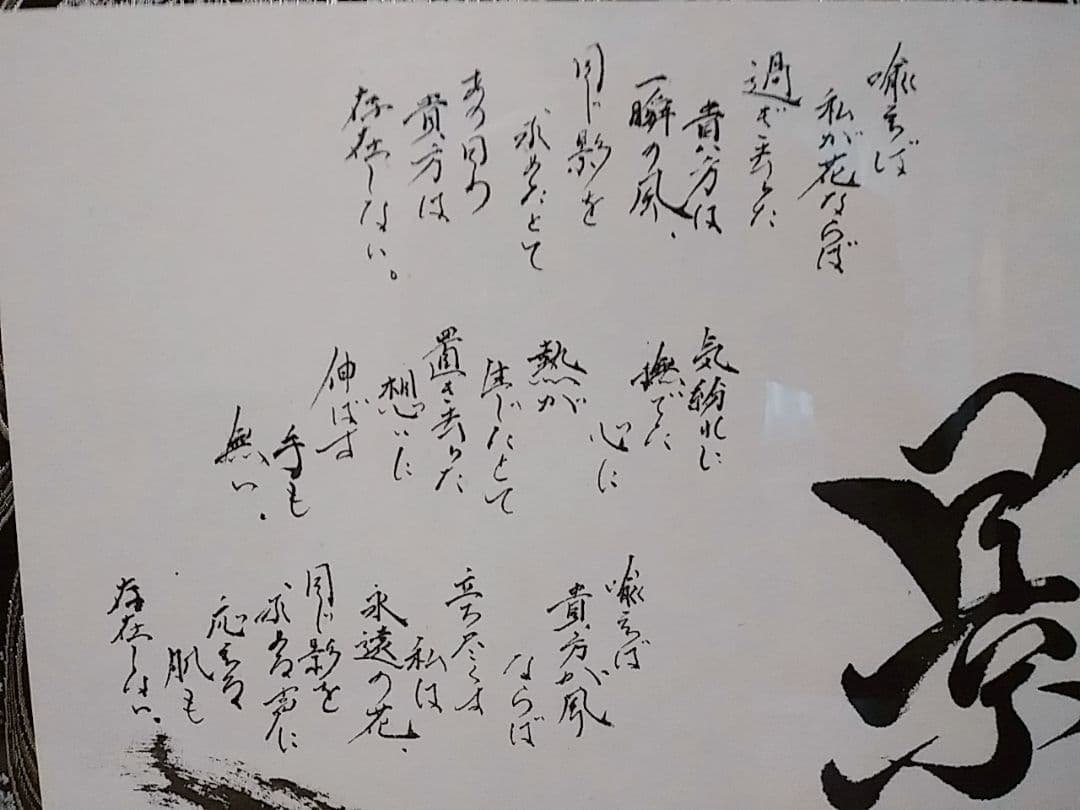 喩えば
私が花ならば
過ぎ去った
貴方は
一瞬の風、
同じ影を
求めたとて
あの日の
貴方は
存在しない。
気紛れに
撫でた
心に
熱が
生じたとて
置き去った
想いに
伸ばす
手も
無い。
喩えば
貴方が風
ならば
立ち尽くす
私は
永遠の花、
同じ影を
求める声に
応える
肌も
存在しない。
景